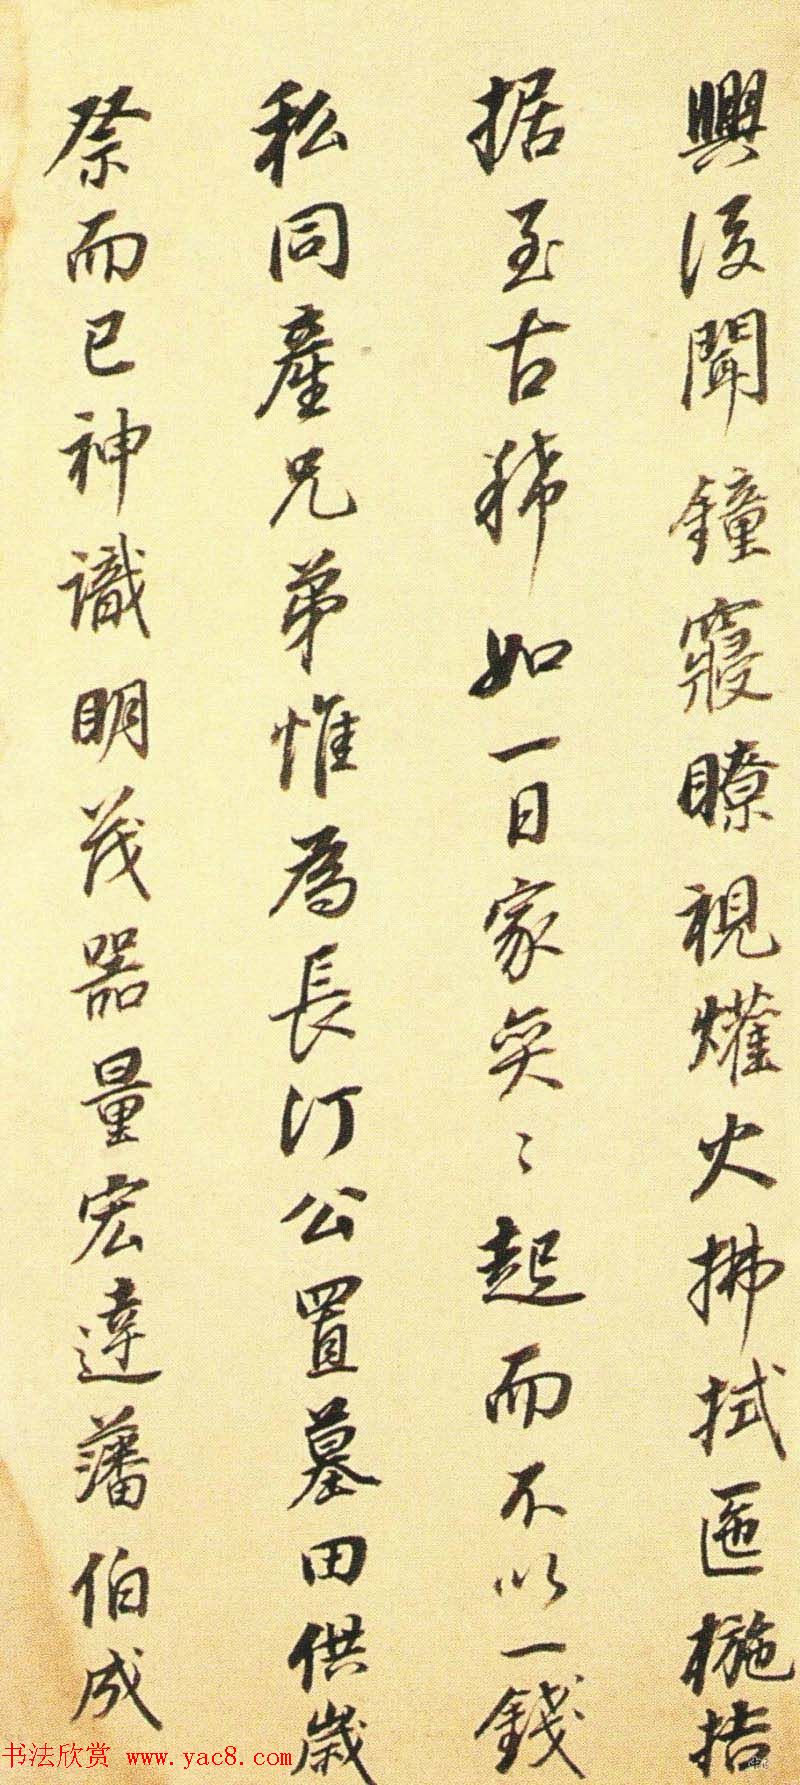 興后聞鐘寤瞭視爟火拂拭匜椸拮
据至古稀如一日家奕〻起而不以一錢
私同產兄弟惟為長汀公置墓田供歲
祭而已神識明茂器量宏達藩伯成
书法欣赏 www.yac8.com